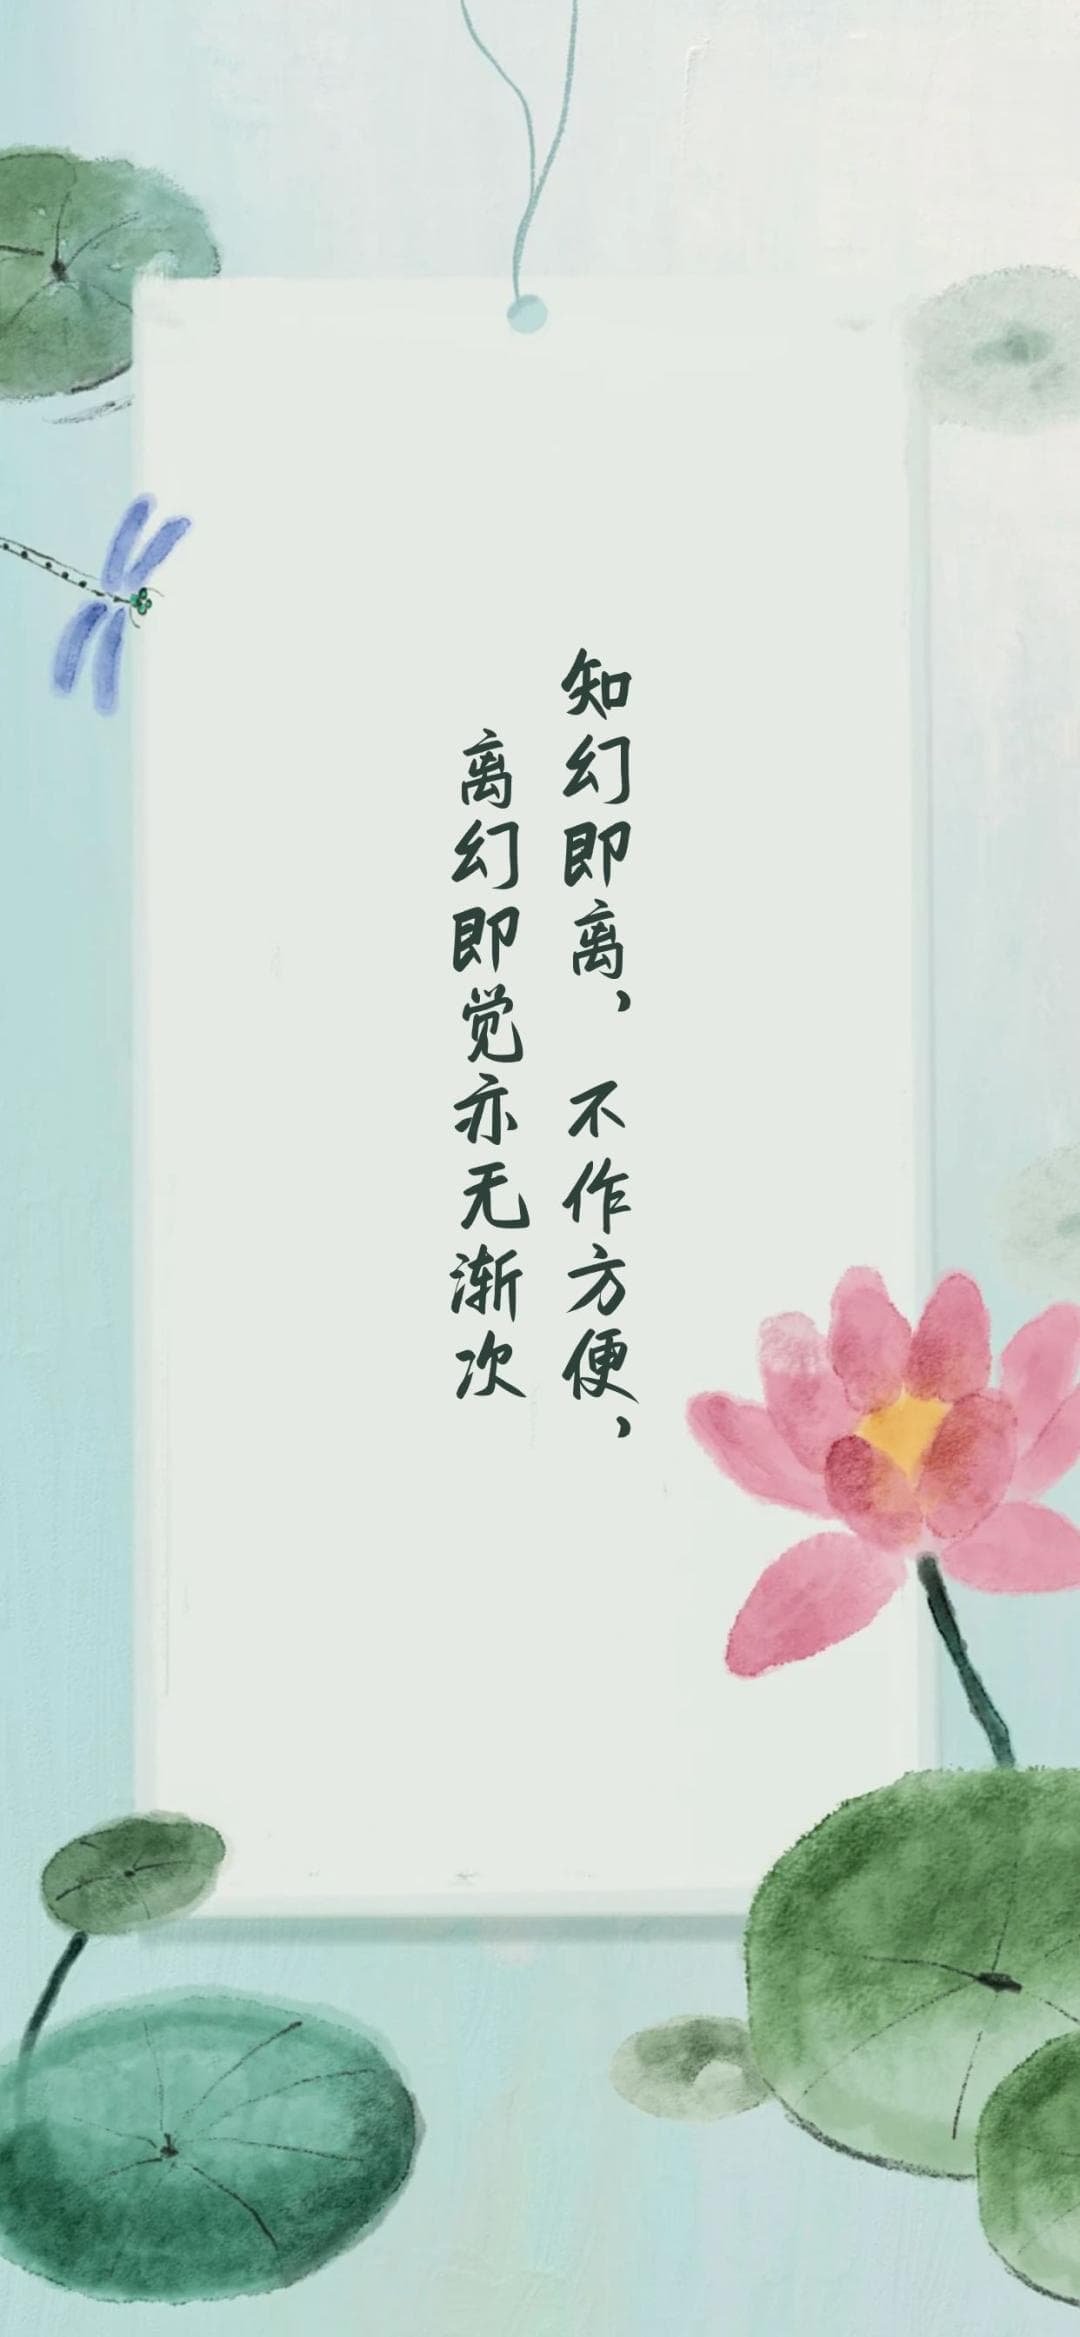 知幻即离，不作方便，
离幻即觉亦无渐次